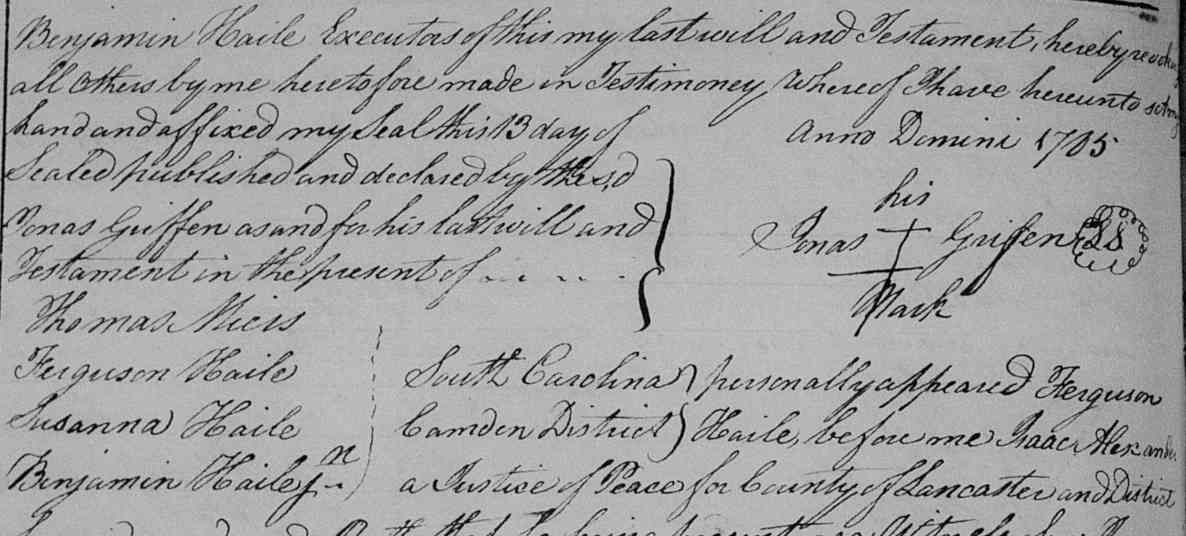 Benjamin Haile Executors of this my last will and Testament, hereby revoking
all others by me heretofore made in Testimoney Whereof I have hereunto set my
hand and affixed my Seal this 13 day of Anno Domini 1785
Sealed published and declared by the sd
Jonas Griffen as and for his last will and
Testament in the present of
his
Jonas + Griffen LS
Mark
Thomas Micis
Ferguson Haile
Susanna Haile
Benjamin Haile jn
South Carolina } personally appeared Ferguson
Camden District } Haile, before me Isaac Alexander
a Justice of Peace for County of Lancaster and District